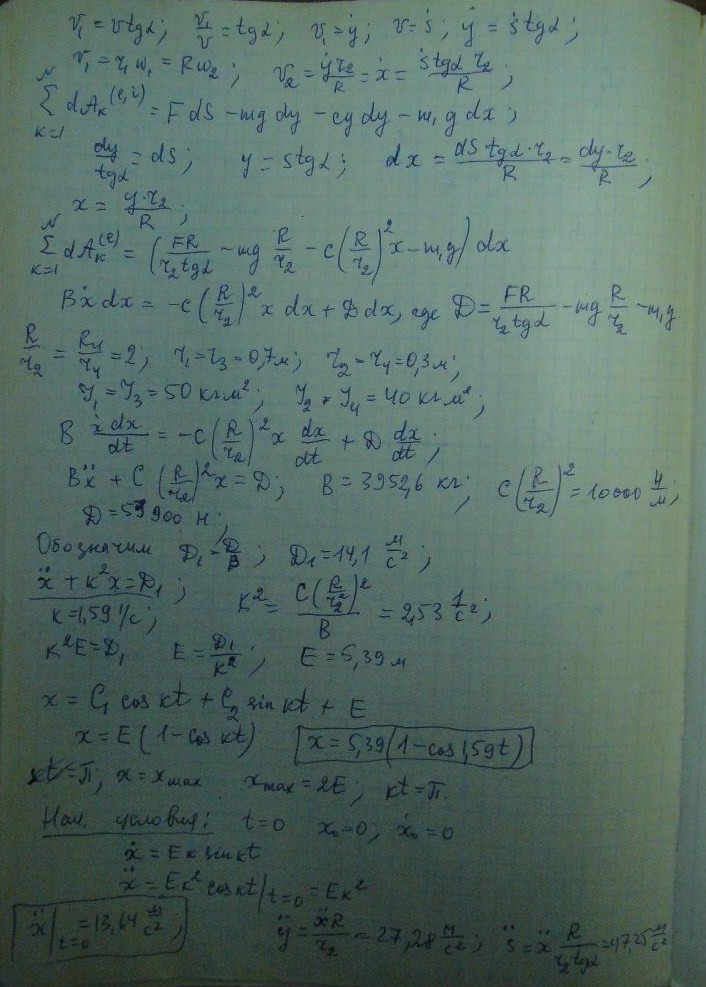 v₁ = v tgα; v₁/v = tgα; v₁ = ẏ; v = ṡ; ẏ = ṡ tgα;
v₁ = r₁ω₁ = Rω₂; v₂ = ẏr₂/R = ẋ = ṡ tgα r₂/R;
∑ₖ₌₁ᴺ dAₖ⁽ᵉ˒ⁱ⁾ = F dS − mg dy − cy dy − m₁g dx;
dy/tgα = dS; y = S tgα; dx = dS tgα · r₂/R = dy · r₂/R;
x = y · r₂/R;
∑ₖ₌₁ᴺ dAₖ⁽ᵉ⁾ = (FR/r₂tgα − mg R/r₂ − c(R/r₂)²x − m₁g) dx
Bẋ dx = −c(R/r₂)² x dx + D dx, где D = FR/r₂tgα − mg R/r₂ − m₁g
R/r₂ = R₄/r₄ = 2; r₁ = r₃ = 0,7 м; r₂ = r₄ = 0,3 м;
J₁ = J₃ = 50 кг м²; J₂ = J₄ = 40 кг м²;
B ẋ dx/dt = −c(R/r₂)² x dx/dt + D dx/dt;
Bẍ + c(R/r₂)² x = D; B = 3952,6 кг; c(R/r₂)² = 10000 н/м;
D = 900 н;
Обозначим D₁ = D/B; D₁ = 14,1 м/с²;
ẍ + k²x = D₁; k² = c(R/r₂)²/B = 2,53 1/с²;
k = 1,59 1/с;
k²E = D₁ E = D₁/k²; E = 5,39 м
x = C₁ cos kt + C₂ sin kt + E
x = E(1 − cos kt) x = 5,39(1 − cos 1,59t)
kt = π; x = xmax xmax = 2E; kt = π.
Нач. условия: t = 0 x₀ = 0; ẋ₀ = 0
ẋ = Ek sin kt
ẍ = Ek² cos kt|t=0 = Ek²
ẍ|t=0 = 13,64 м/с²; ÿ = ẍR/r₂ = 27,28 м/с²; s̈ = ẍ R/r₂tgα = 47,25 м/с²